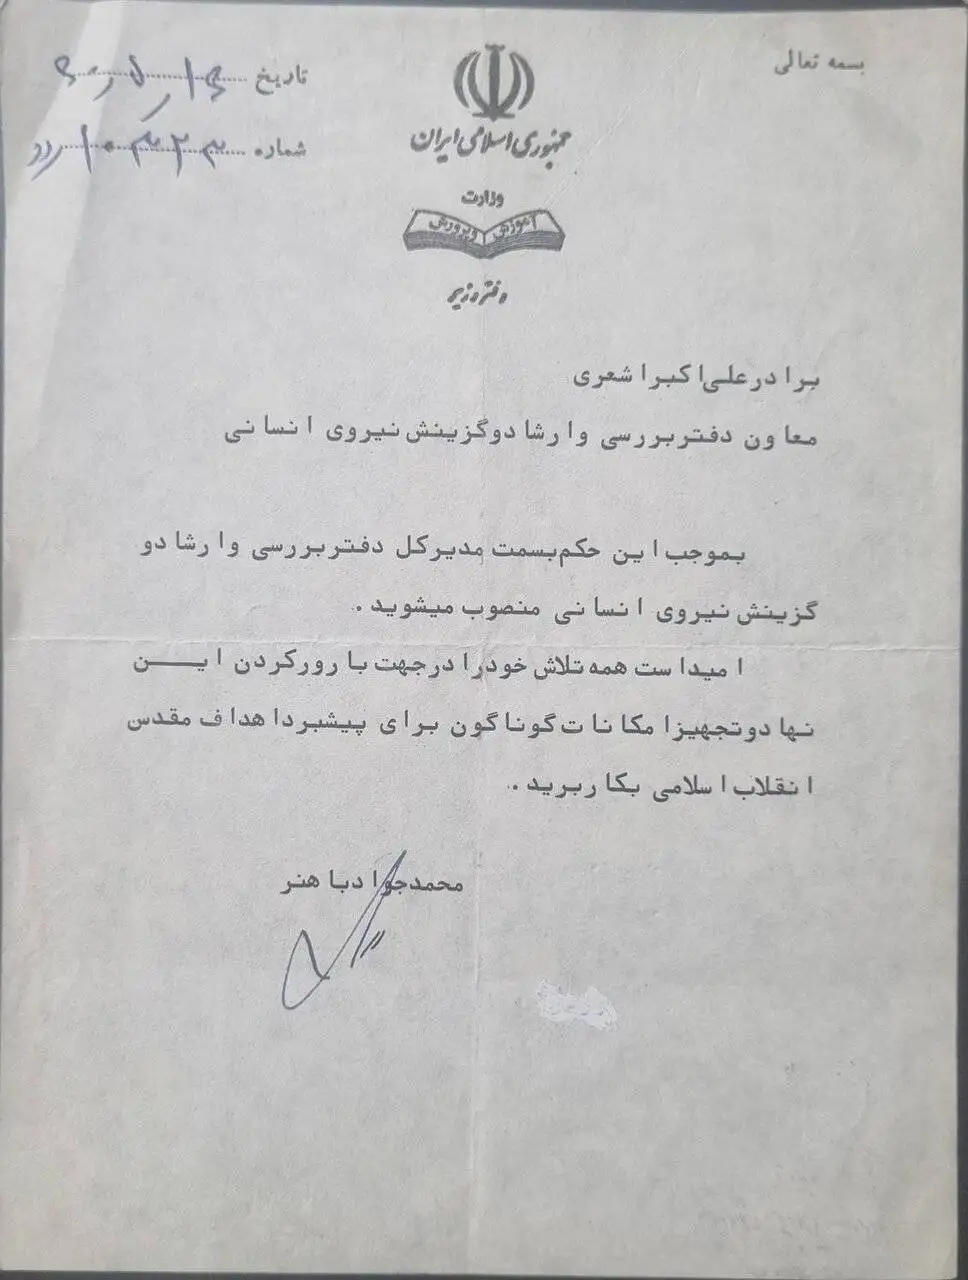 بسمه تعالی
جمهوری اسلامی ایران
وزارت
آموزش و پرورش
دفتر وزیر
تاریخ
شماره
برادر علی اکبر اشعری
معاون دفتر بررسی و ارشاد و گزینش نیروی انسانی
بموجب این حکم بسمت مدیر کل دفتر بررسی و ارشاد و
گزینش نیروی انسانی منصوب میشوید .
امید است همه تلاش خود را در جهت بارور کردن ایـــن
نهاد و تجهیز امکانات گوناگون برای پیشبرد اهداف مقدس
انقلاب اسلامی بکار برید .
محمد جواد باهنر